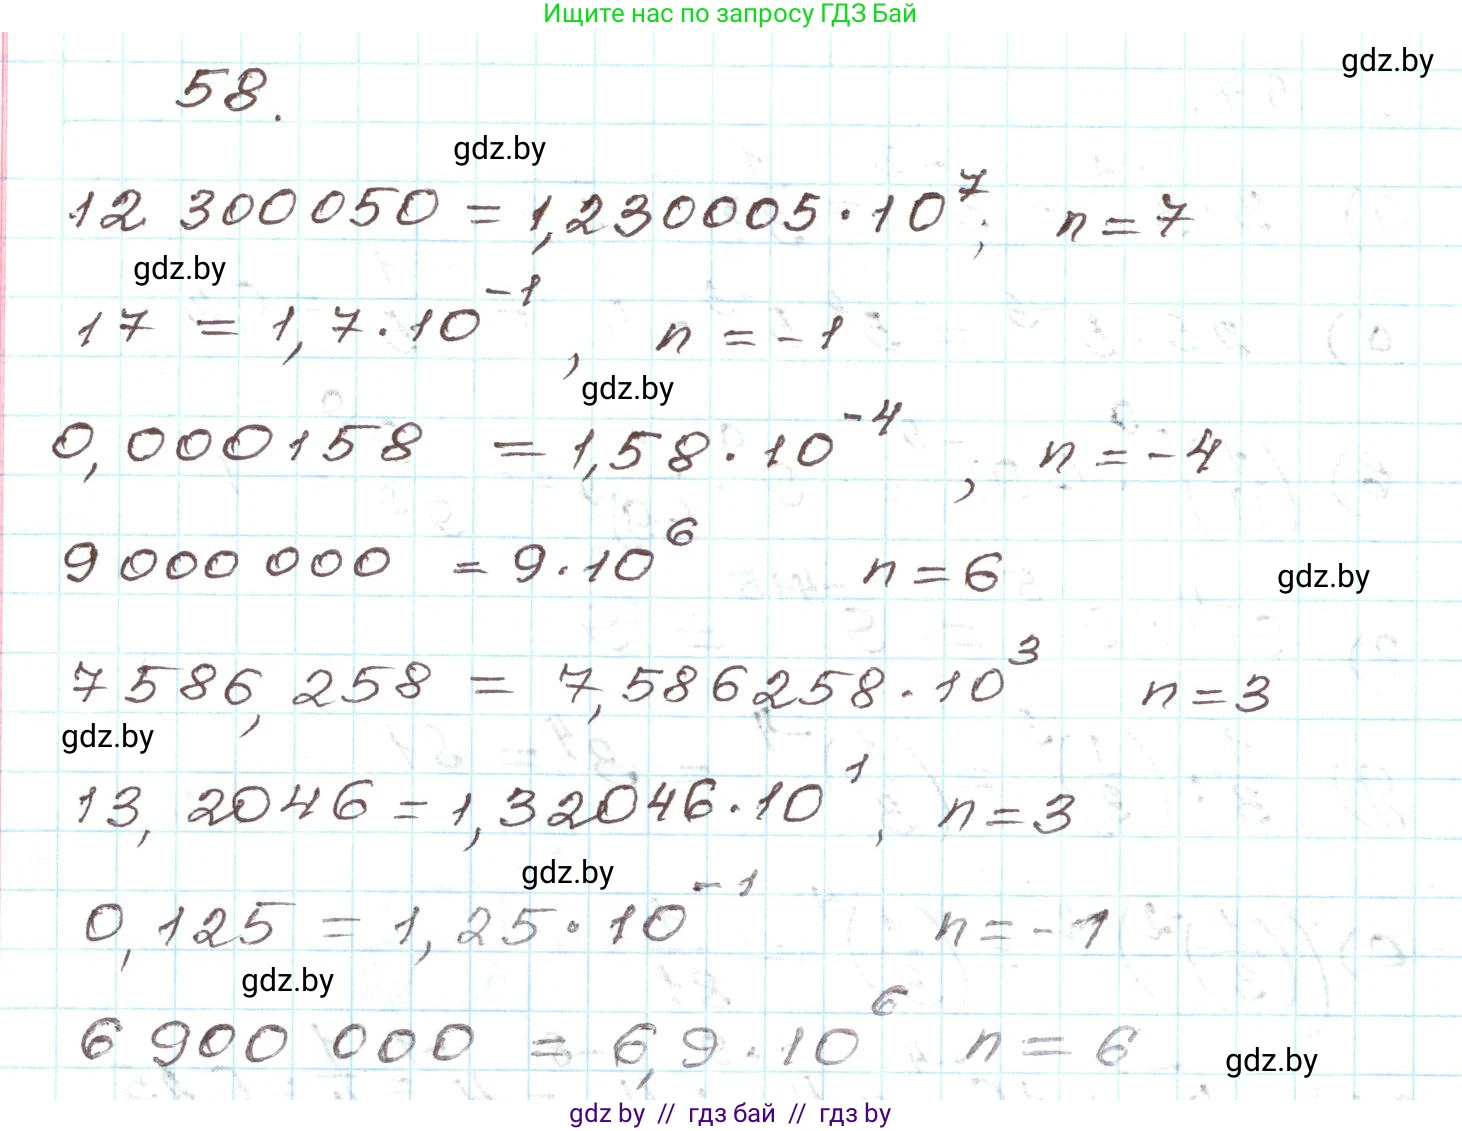 Ищите нас по запросу ГДЗ Бай
gdz.by
58.
gdz.by
12 300050 = 1,230005·10⁷; n=7
gdz.by
17 = 1,7·10⁻¹, n = -1
gdz.by
0,000158 = 1,58·10⁻⁴; n=-4
9000 000 = 9·10⁶ n=6
gdz.by
7586,258 = 7,586258·10³ n=3
gdz.by
13,2046=1,32046·10¹, n=3
gdz.by
0,125 = 1,25·10⁻¹ n=-1
gdz.by
6 900 000 = 6,9·10⁶ n = 6
gdz.by
gdz by // гдз бай // гдз by